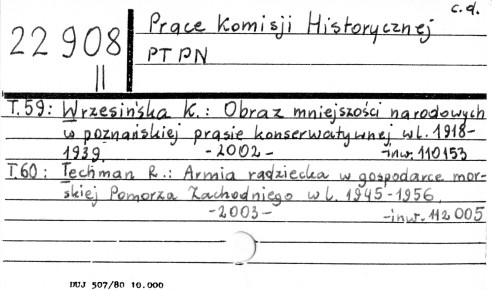 c.d.
22 908
II
Prace Komisji Historycznej
PTPN
T.59: Wrzesińska K.: Obraz mniejszości narodowych
w poznańskiej prasie konserwatywnej w l. 1918-
1939. -2002- -inw. 110153
T.60: Techman R.: Armia radziecka w gospodarce mor-
skiej Pomorza Zachodniego w l. 1945-1956.
-2003- -inw. 112005
DUJ 507/80 10.000